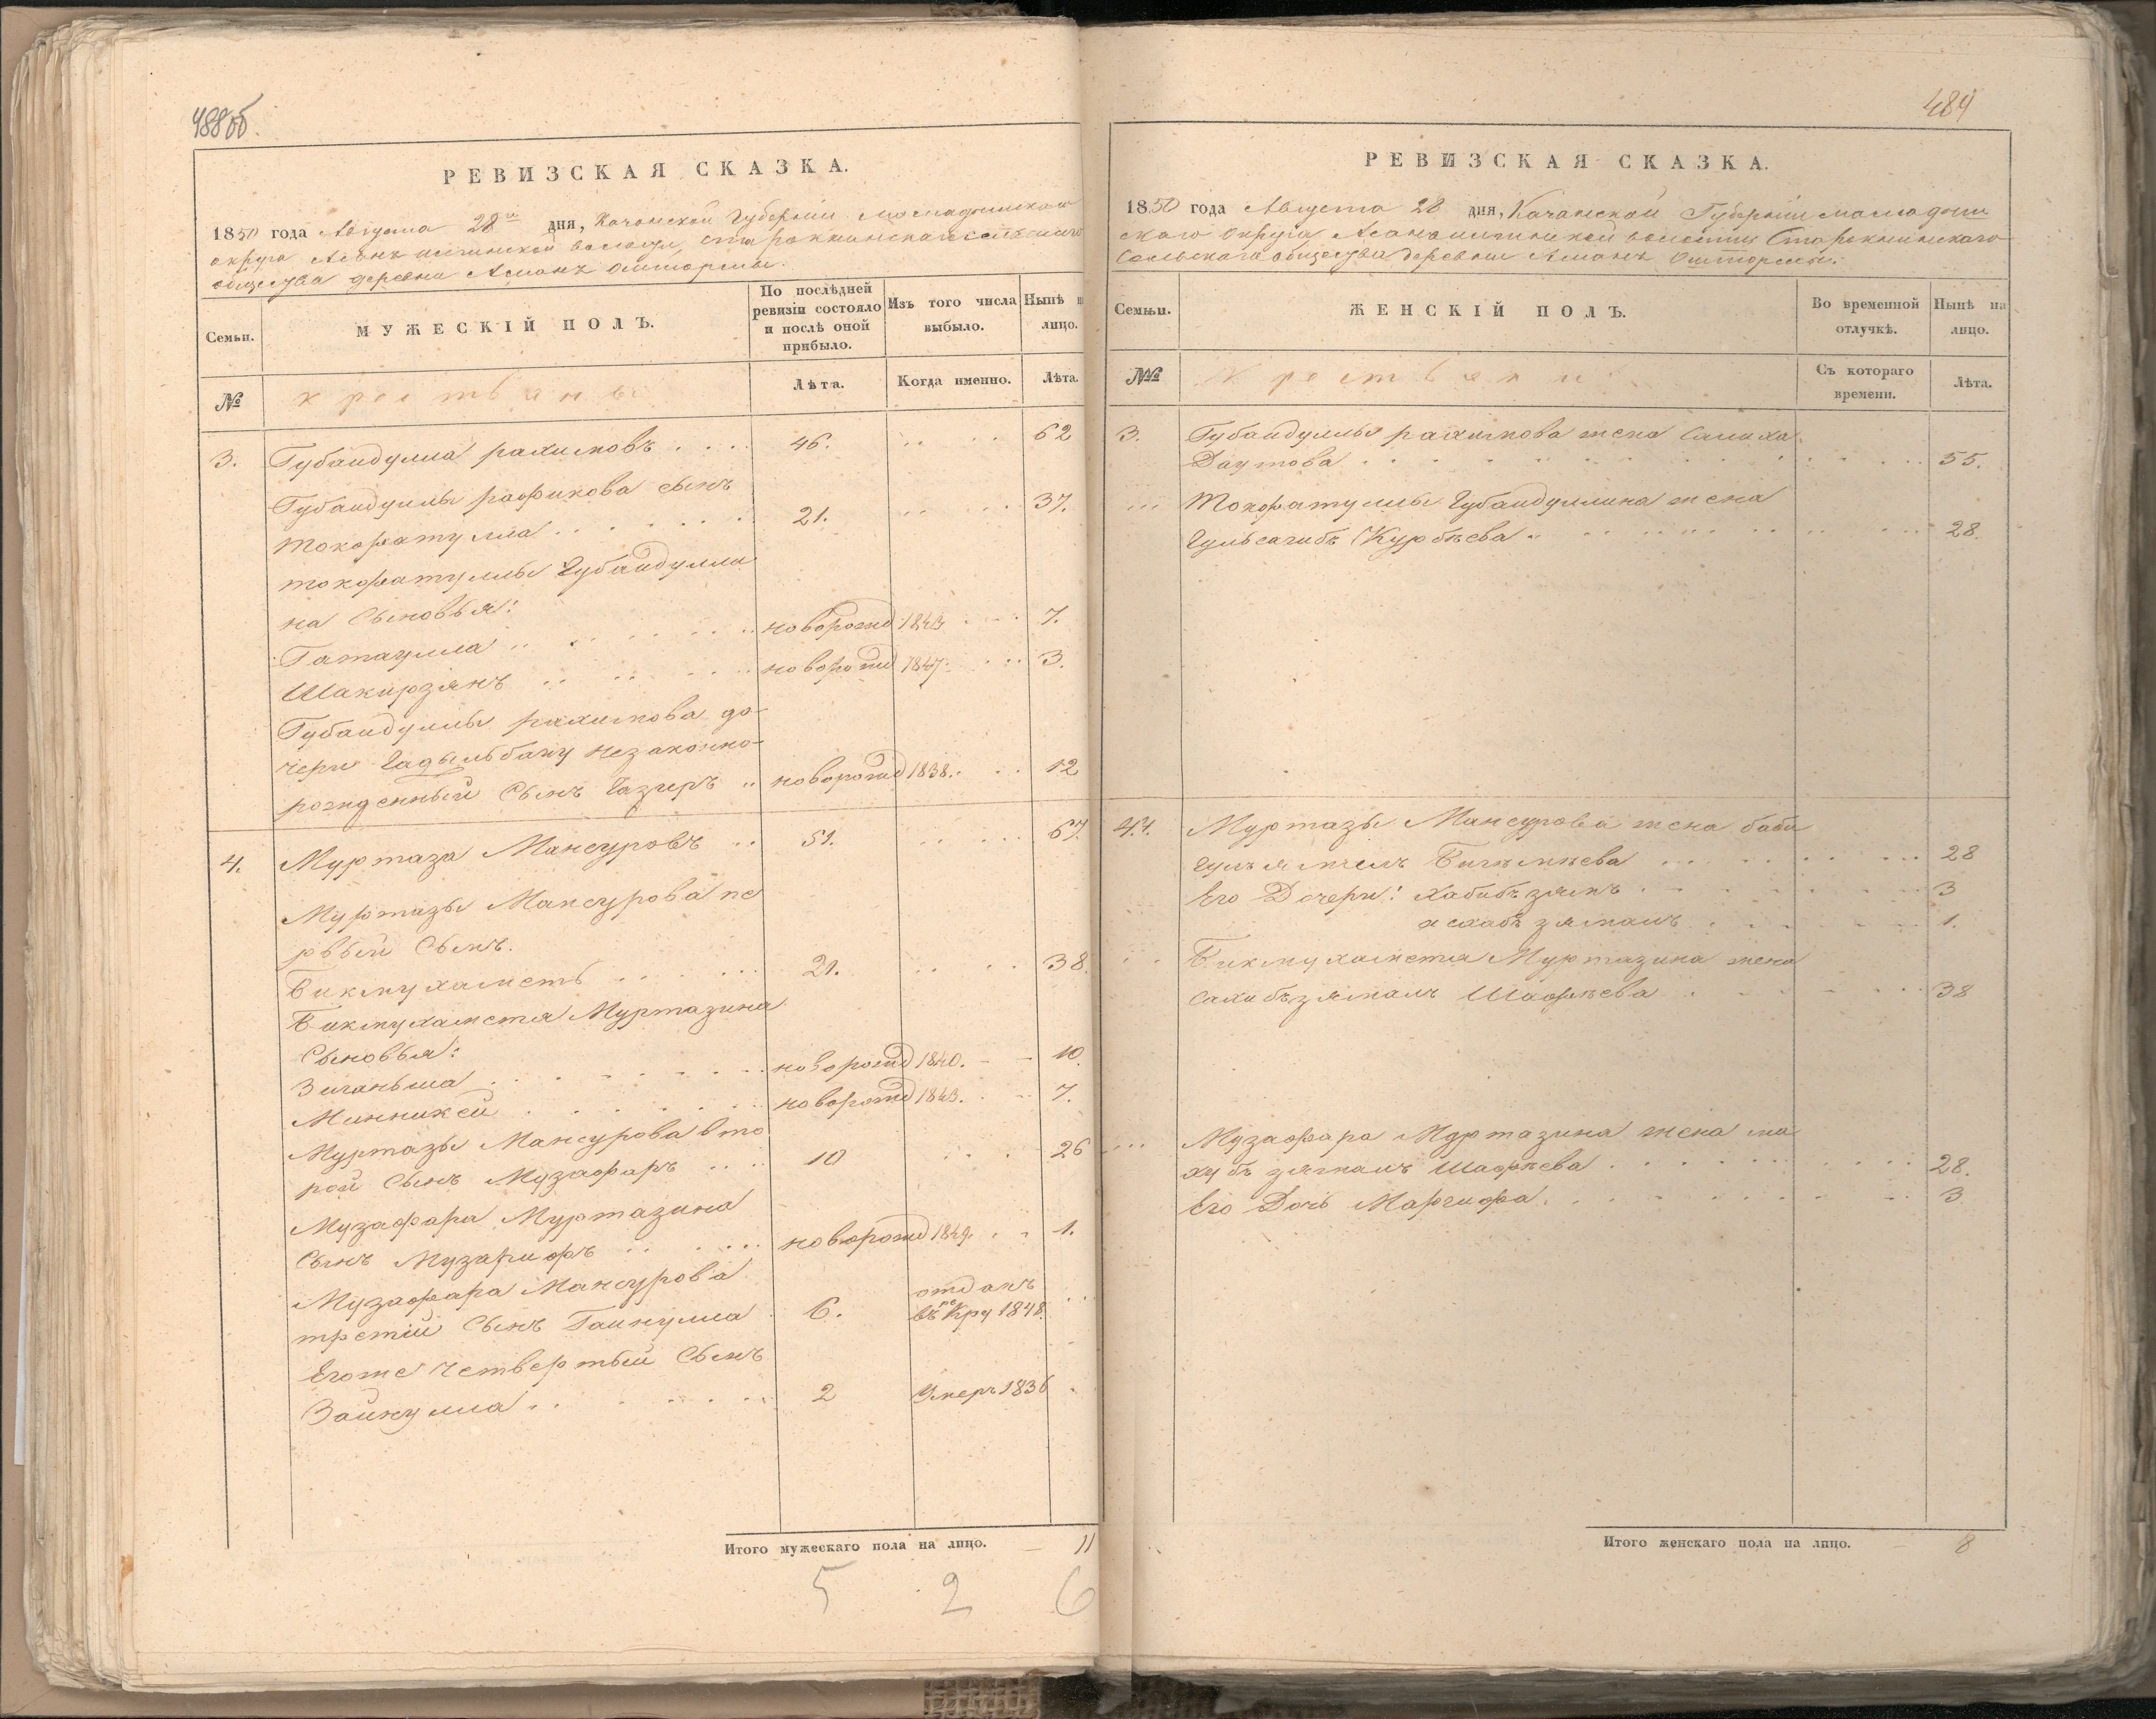 488об.
РЕВИЗСКАЯ СКАЗКА.
1850 года Августа 28го дня, Казанской Губернии Мамадышскаго
округа Асанъ илгинской волости, старокнинскаго сельскаго
общества деревни Асманъ Оштормы.
Семьи.
МУЖЕСКІЙ ПОЛЪ.
По послѣдней ревизіи состояло и послѣ оной прибыло.
Изъ того числа выбыло.
Нынѣ на лицо.
№
крестьяны
Лѣта.
Когда именно.
Лѣта.
3. Губайдулла рахимовъ . . . . 46. . . . . 62
Губайдуллы рафикова сынъ
Токфатулла . . . . . . 21. . . . . 37.
токфатуллы Губайдулли
на Сыновья:
Гатаулла . . . . . . новорожд 1843 . . . 7.
Шакирзянъ . . . . . . новорожд 1847. . . . 3.
Губайдуллы рахимова до-
чери Гадыльбану незаконно-
рожденный Сынъ Газизъ .. новорожд 1838. . . . 12
4. Муртаза Мансуровъ .. 51. . . . . 67.
Муртазы Мансурова пе
рвый Сынъ.
Бикмухаметъ . . . . . 21. . . . . 38.
Бикмухаметя Муртазина
Сыновья:
Зиганьша . . . . . . новорожд 1840. - - 10.
Минникей . . . . . . новорожд 1843. . . - 7.
Муртазы Мансурова вто
рой Сынъ Музафаръ . . . . 10 . . . 26
Музафара Муртазина
Сынъ Музарифъ . . . . . новорожд 1849. . . 1.
Музафара Мансурова
третій Сынъ Гайнулла . 6. отданъ въ рекру 1848. . . .
Егоже четвертый Сынъ
Зайнулла . . . . . . . 2 Умеръ 1836 .
Итого мужескаго пола на лицо. — 11
5 2 6
489
РЕВИЗСКАЯ СКАЗКА.
1850 года Августа 28 дня, Казанской Губерніи мамадыш
скаго Округа Асанъ илгинской волости Старокнинскаго
Сельскаго общества деревни Асманъ Оштормы.
Семьи.
ЖЕНСКІЙ ПОЛЪ.
Во временной отлучкѣ.
Нынѣ на лицо.
№№
Крестьянки
Съ котораго времени.
Лѣта.
3. Губайдуллы рахимова жена Салиха
Даутова . . . . . . . . . . 55.
... Токфатуллы Губайдуллина жена
Гульсагибъ Курбѣева . . . . . . . 28.
4. 4. Муртазы Мансурова жена биби
гульямалъ Бигимѣева . . . . . . . . 28
Его Дочери: Хабибъзямъ . . . . . . . 3
асхабъ зямалъ . . . . . . 1.
. . Бикмухаметя Муртазина жена
Сахибъзямалъ Шафѣева . . . . . . 38
... Музафара Муртазина жена ма
хубъ зямалъ Шафѣева . . . . . . . . 28.
Его Дочь Маргифа . . . . . . . . 3
Итого женскаго пола на лицо. — 8